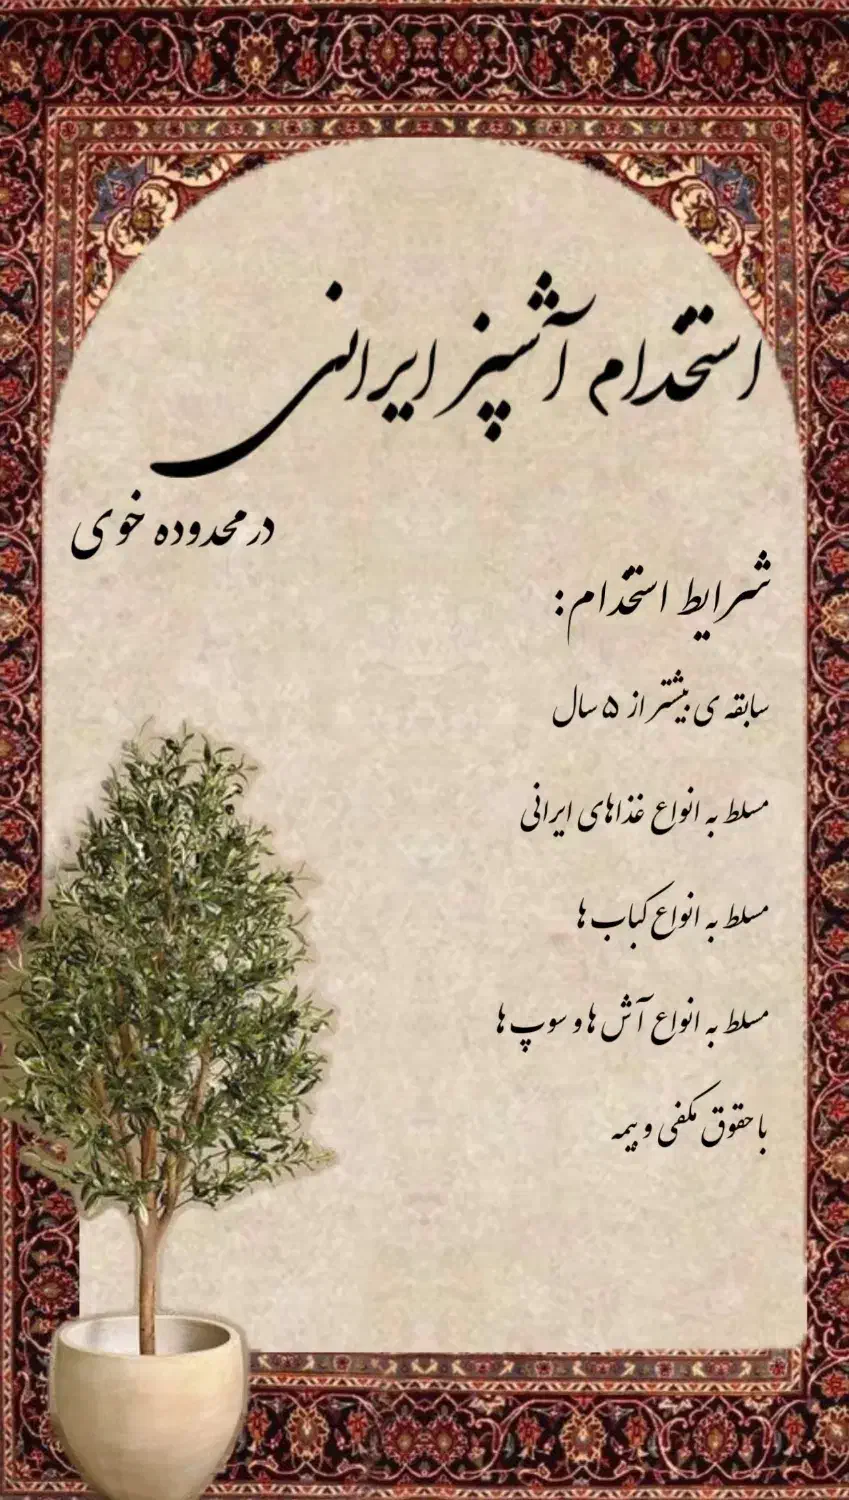 استخدام آشپز ایرانی
در محدوده خوی
شرایط استخدام:
سابقه ی بیشتر از ۵ سال
مسلط به انواع غذاهای ایرانی
مسلط به انواع کباب ها
مسلط به انواع آش ها و سوپ ها
با حقوق مکفی و بیمه